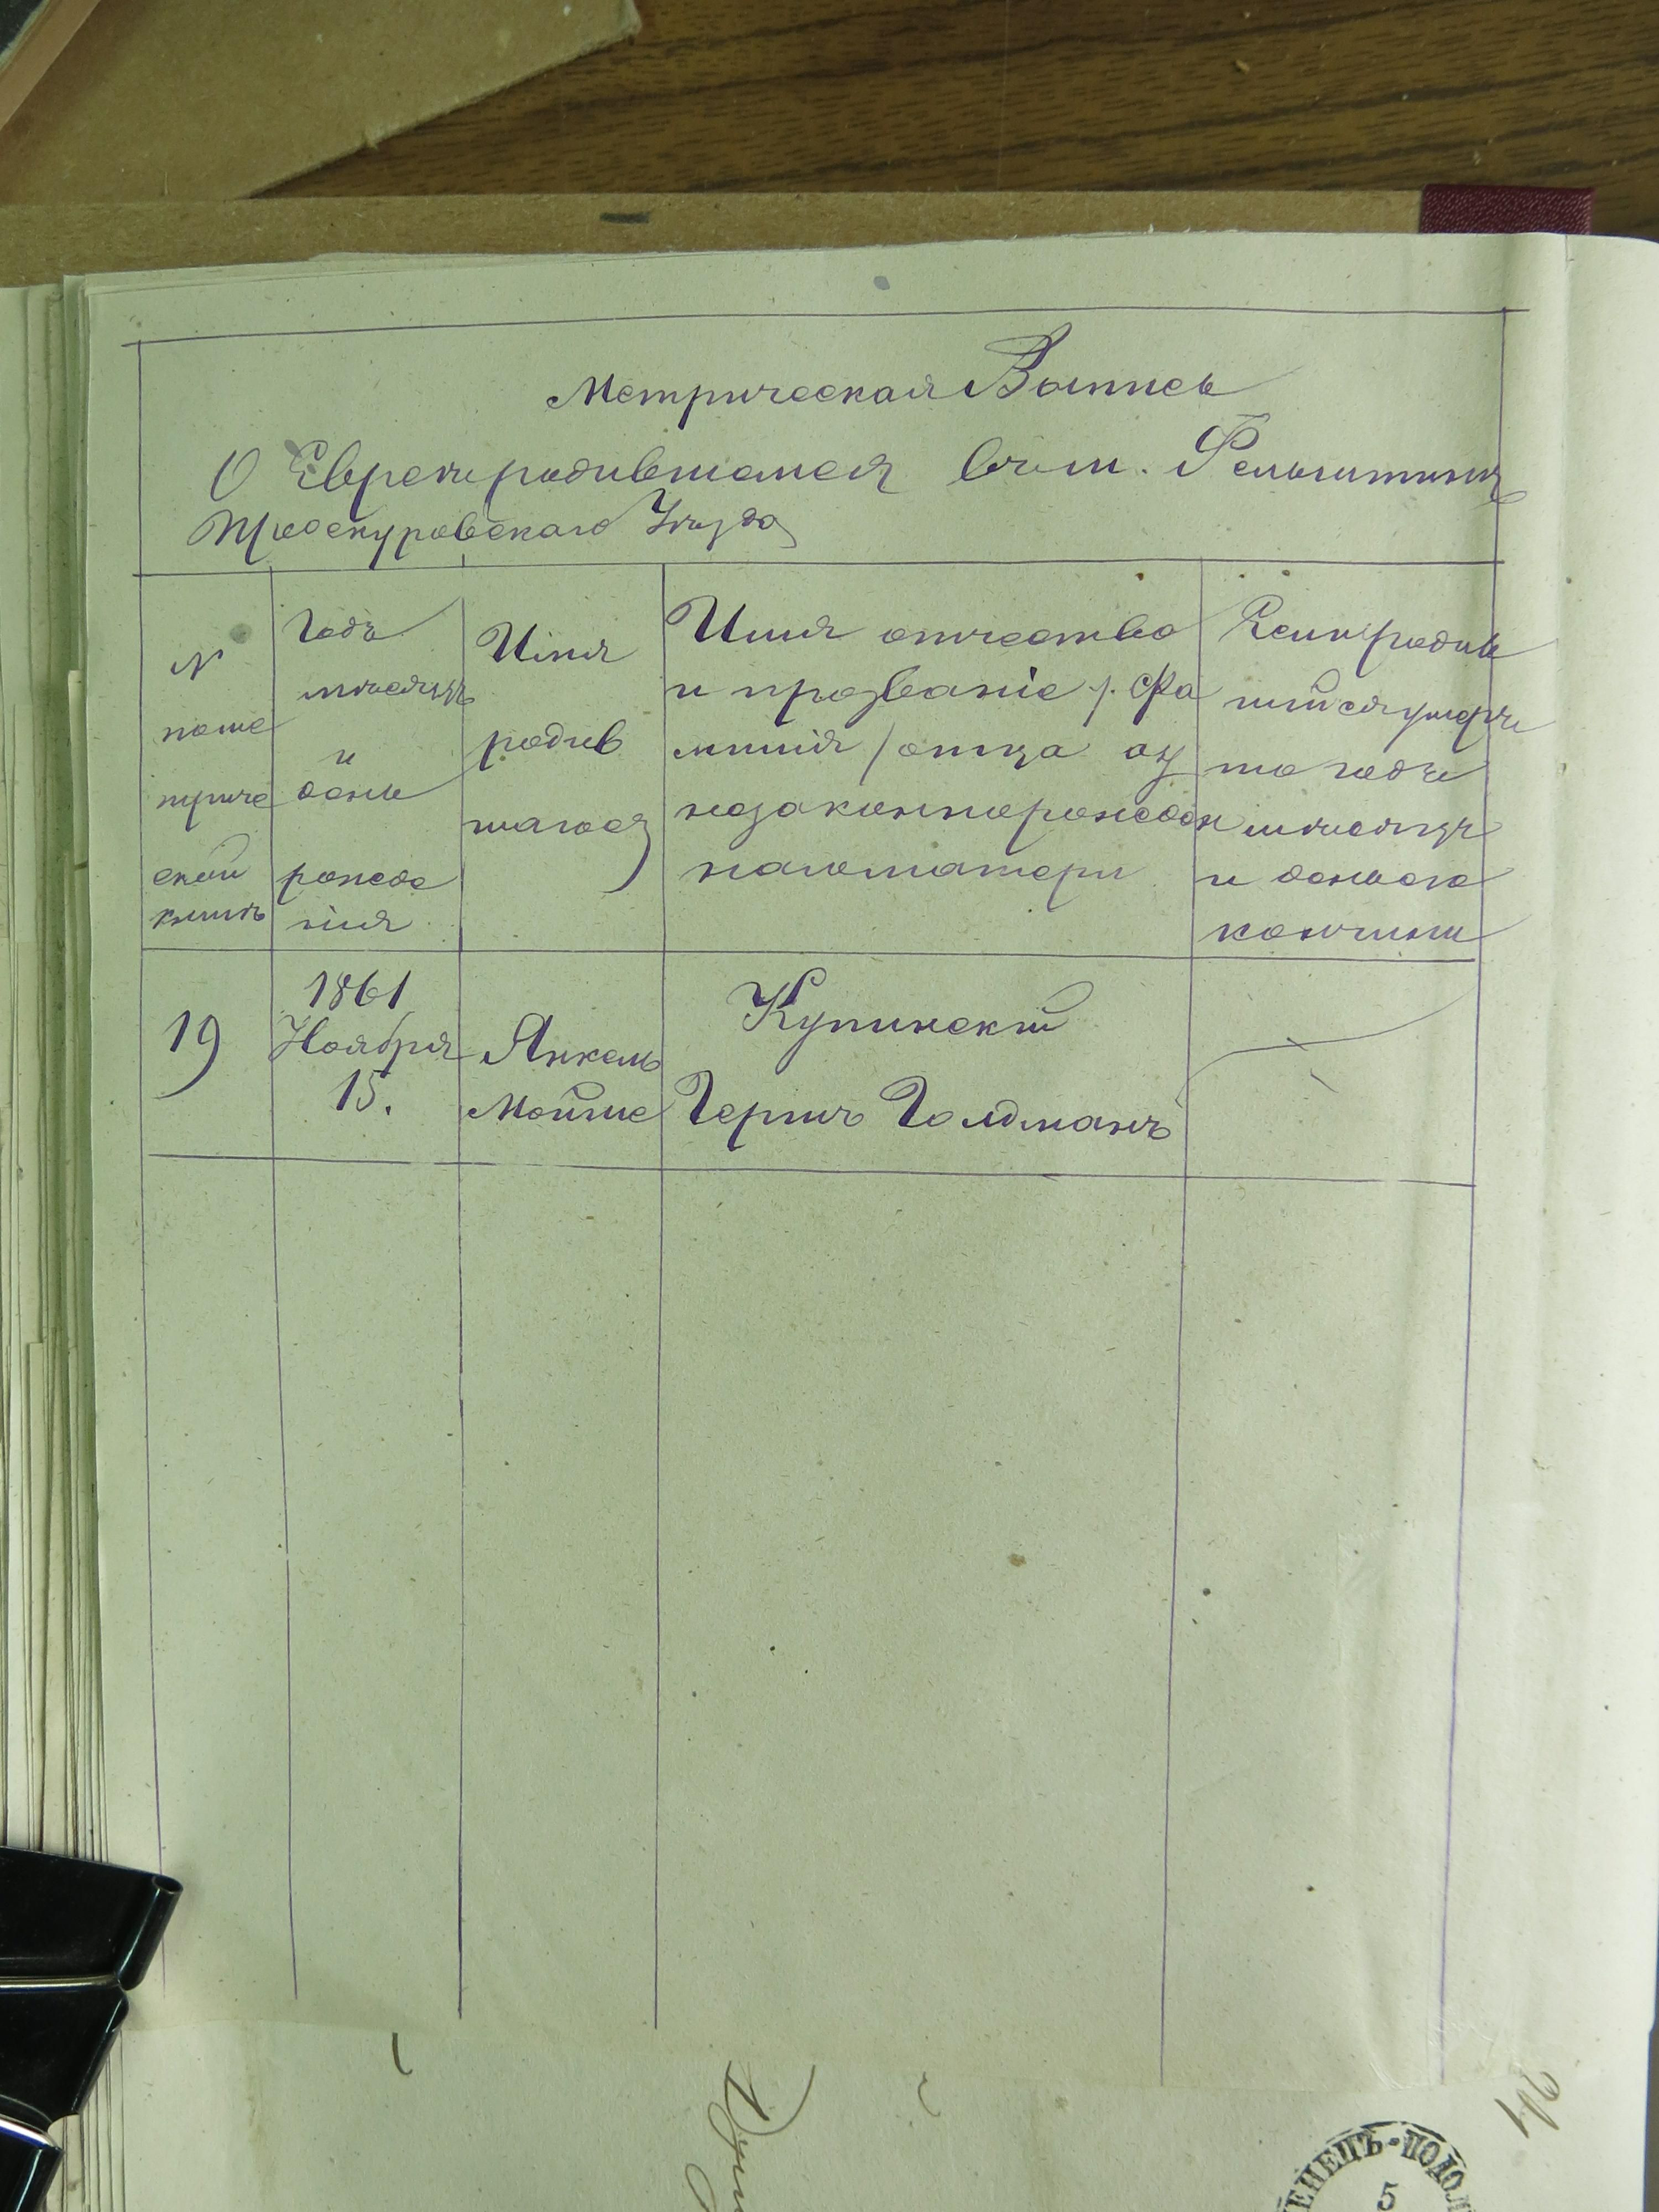 Метрическая Выпись
О Евреѣ родившемся въ м. Фельштинѣ
Проскуровскаго Уѣзда
N
поме
триче
ской
книгѣ
Годъ
мѣсяцъ
и
день
рожде
нія
Имя
родив
шагося
Имя отчество
и прозваніе /. Фа
милія / отца а у
незаконнорожден
наго матери
Если родив
шійся умеръ
то годъ
мѣсяцъ
и день его
кончины
19
1861
Ноября
15.
Янкель
Мойше
Купинскій
Гершъ Голдманъ
ЕНЕЦЪ-ПОДОЛ
5